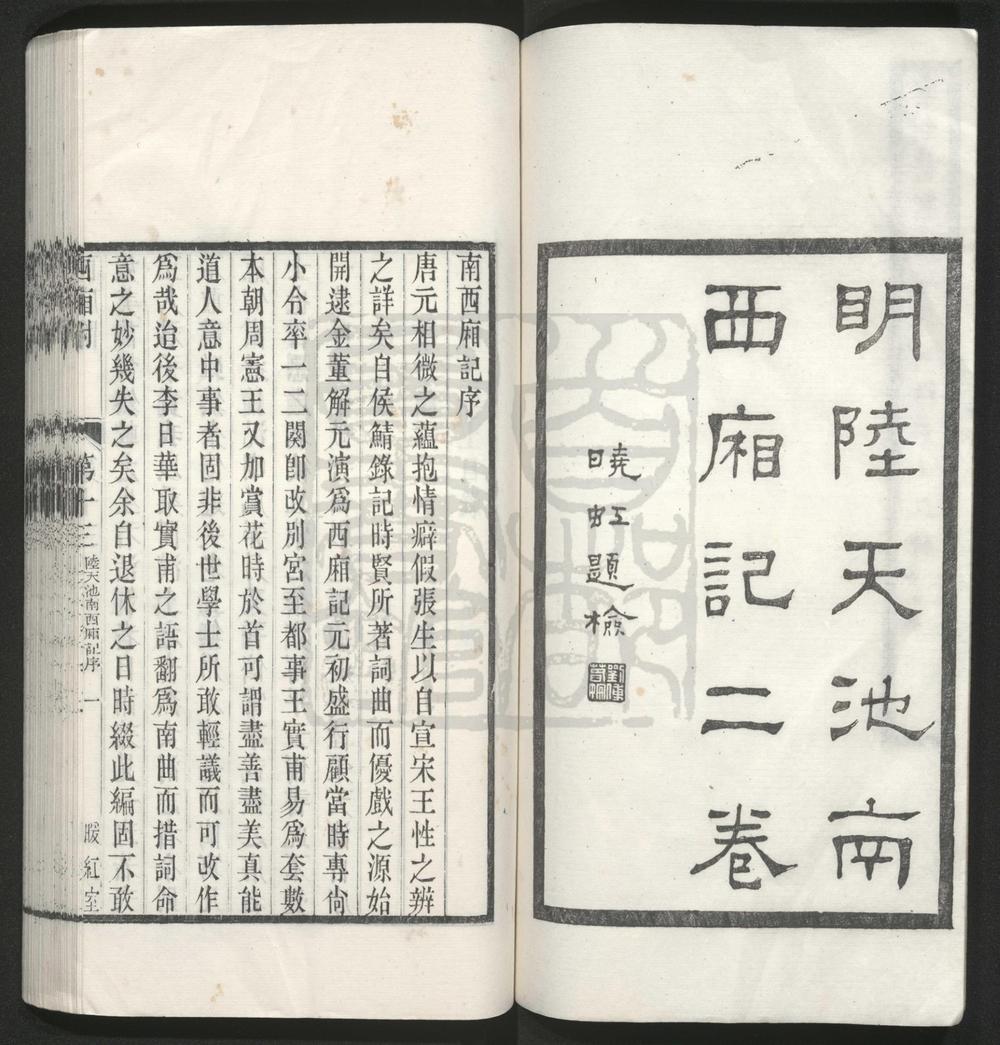 明陸天池南
西廂記二卷
曉虹題檢
南西廂記序
唐元相微之蘊抱情癖假張生以自宣宋王性之辨
之詳矣自侯鯖錄記時賢所著詞曲而優戲之源始
開逮金董解元演爲西廂記元初盛行顧當時專尙
小令率一二闋卽改別宮至都事王實甫易爲套數
本朝周憲王又加賞花時於首可謂盡善盡美真能
道人意中事者固非後世學士所敢輕議而可改作
爲哉迨後李日華取實甫之語翻爲南曲而措詞命
意之妙幾失之矣余自退休之日時綴此編固不敢
西廂 第十三 陸天池南西廂記序 一 暖紅室